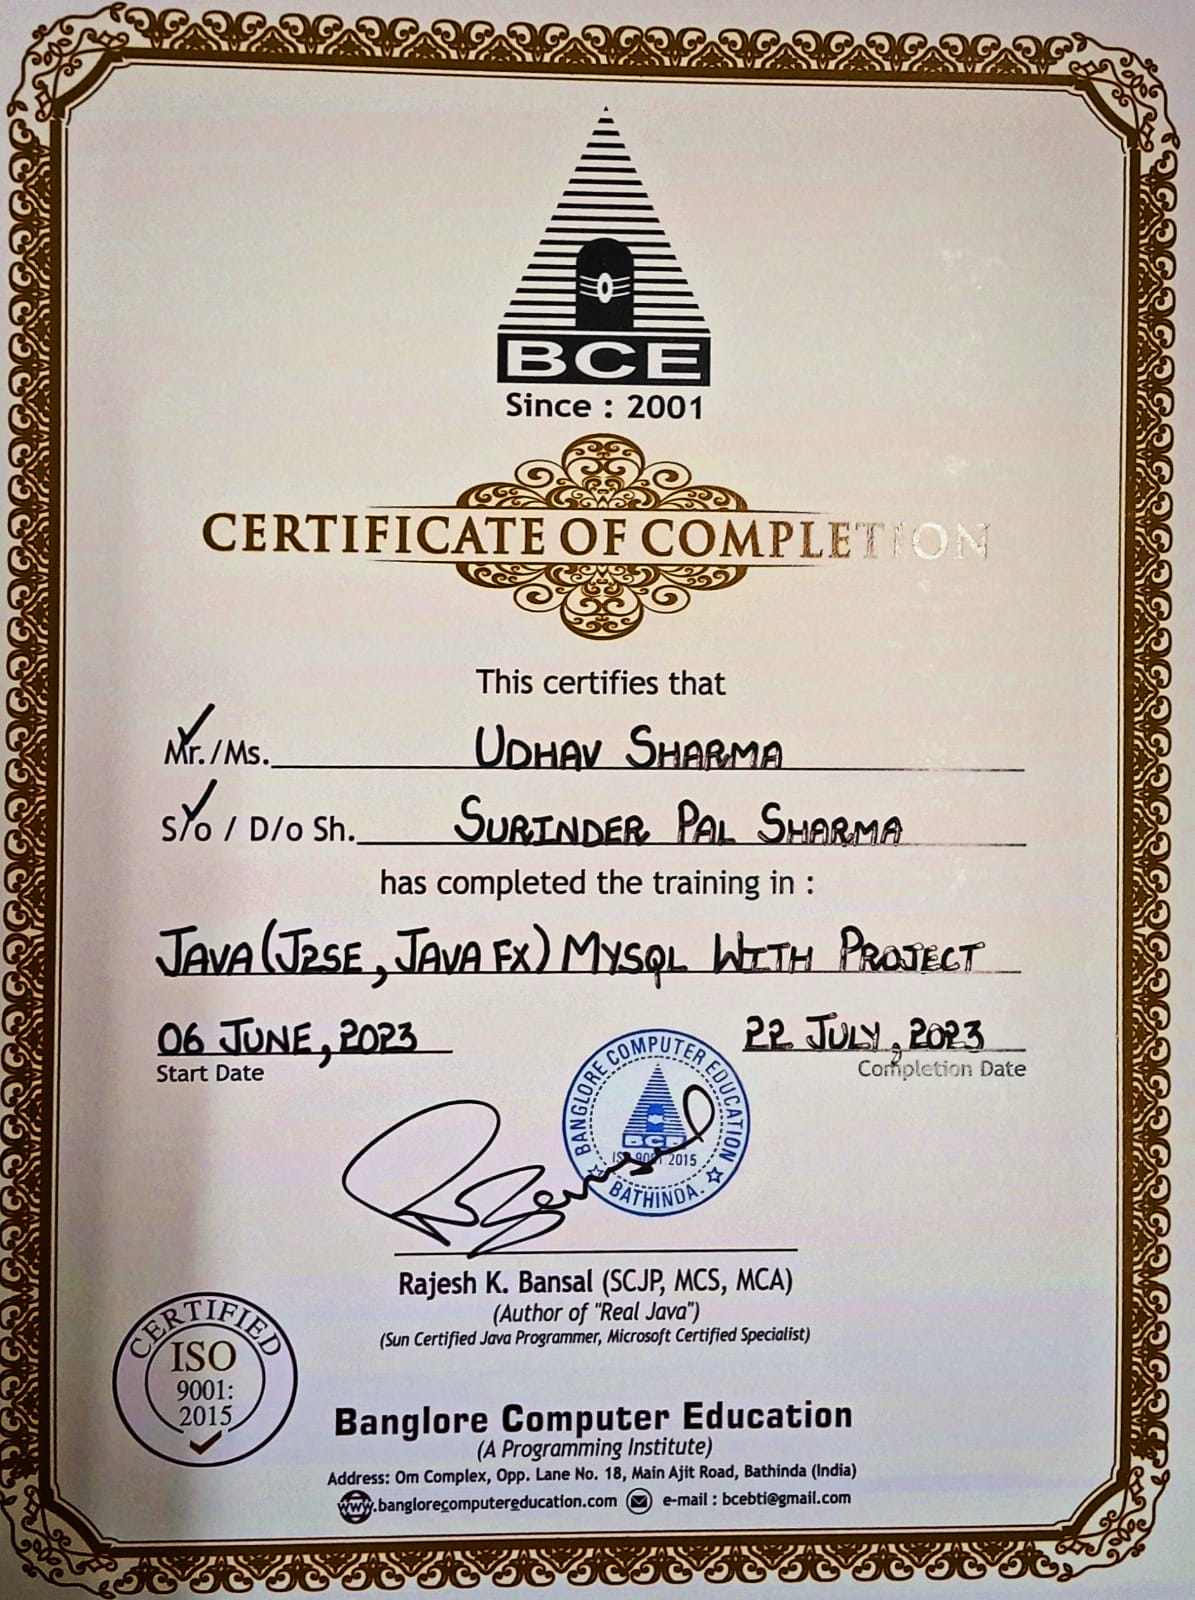 BCE
Since : 2001
CERTIFICATE OF COMPLETION
This certifies that
Mr./Ms. UDHAV SHARMA
S/o / D/o Sh. SURINDER PAL SHARMA
has completed the training in :
JAVA (J2SE, JAVA FX) MYSQL WITH PROJECT
06 JUNE, 2023 22 JULY, 2023
Start Date Completion Date
BANGLORE COMPUTER EDUCATION
BCE
ISO 9001 2015
BATHINDA.
Rajesh K. Bansal (SCJP, MCS, MCA)
(Author of "Real Java")
(Sun Certified Java Programmer, Microsoft Certified Specialist)
CERTIFIED
ISO
9001:
2015
Banglore Computer Education
(A Programming Institute)
Address: Om Complex, Opp. Lane No. 18, Main Ajit Road, Bathinda (India)
www.banglorecomputereducation.com e-mail : bcebti@gmail.com